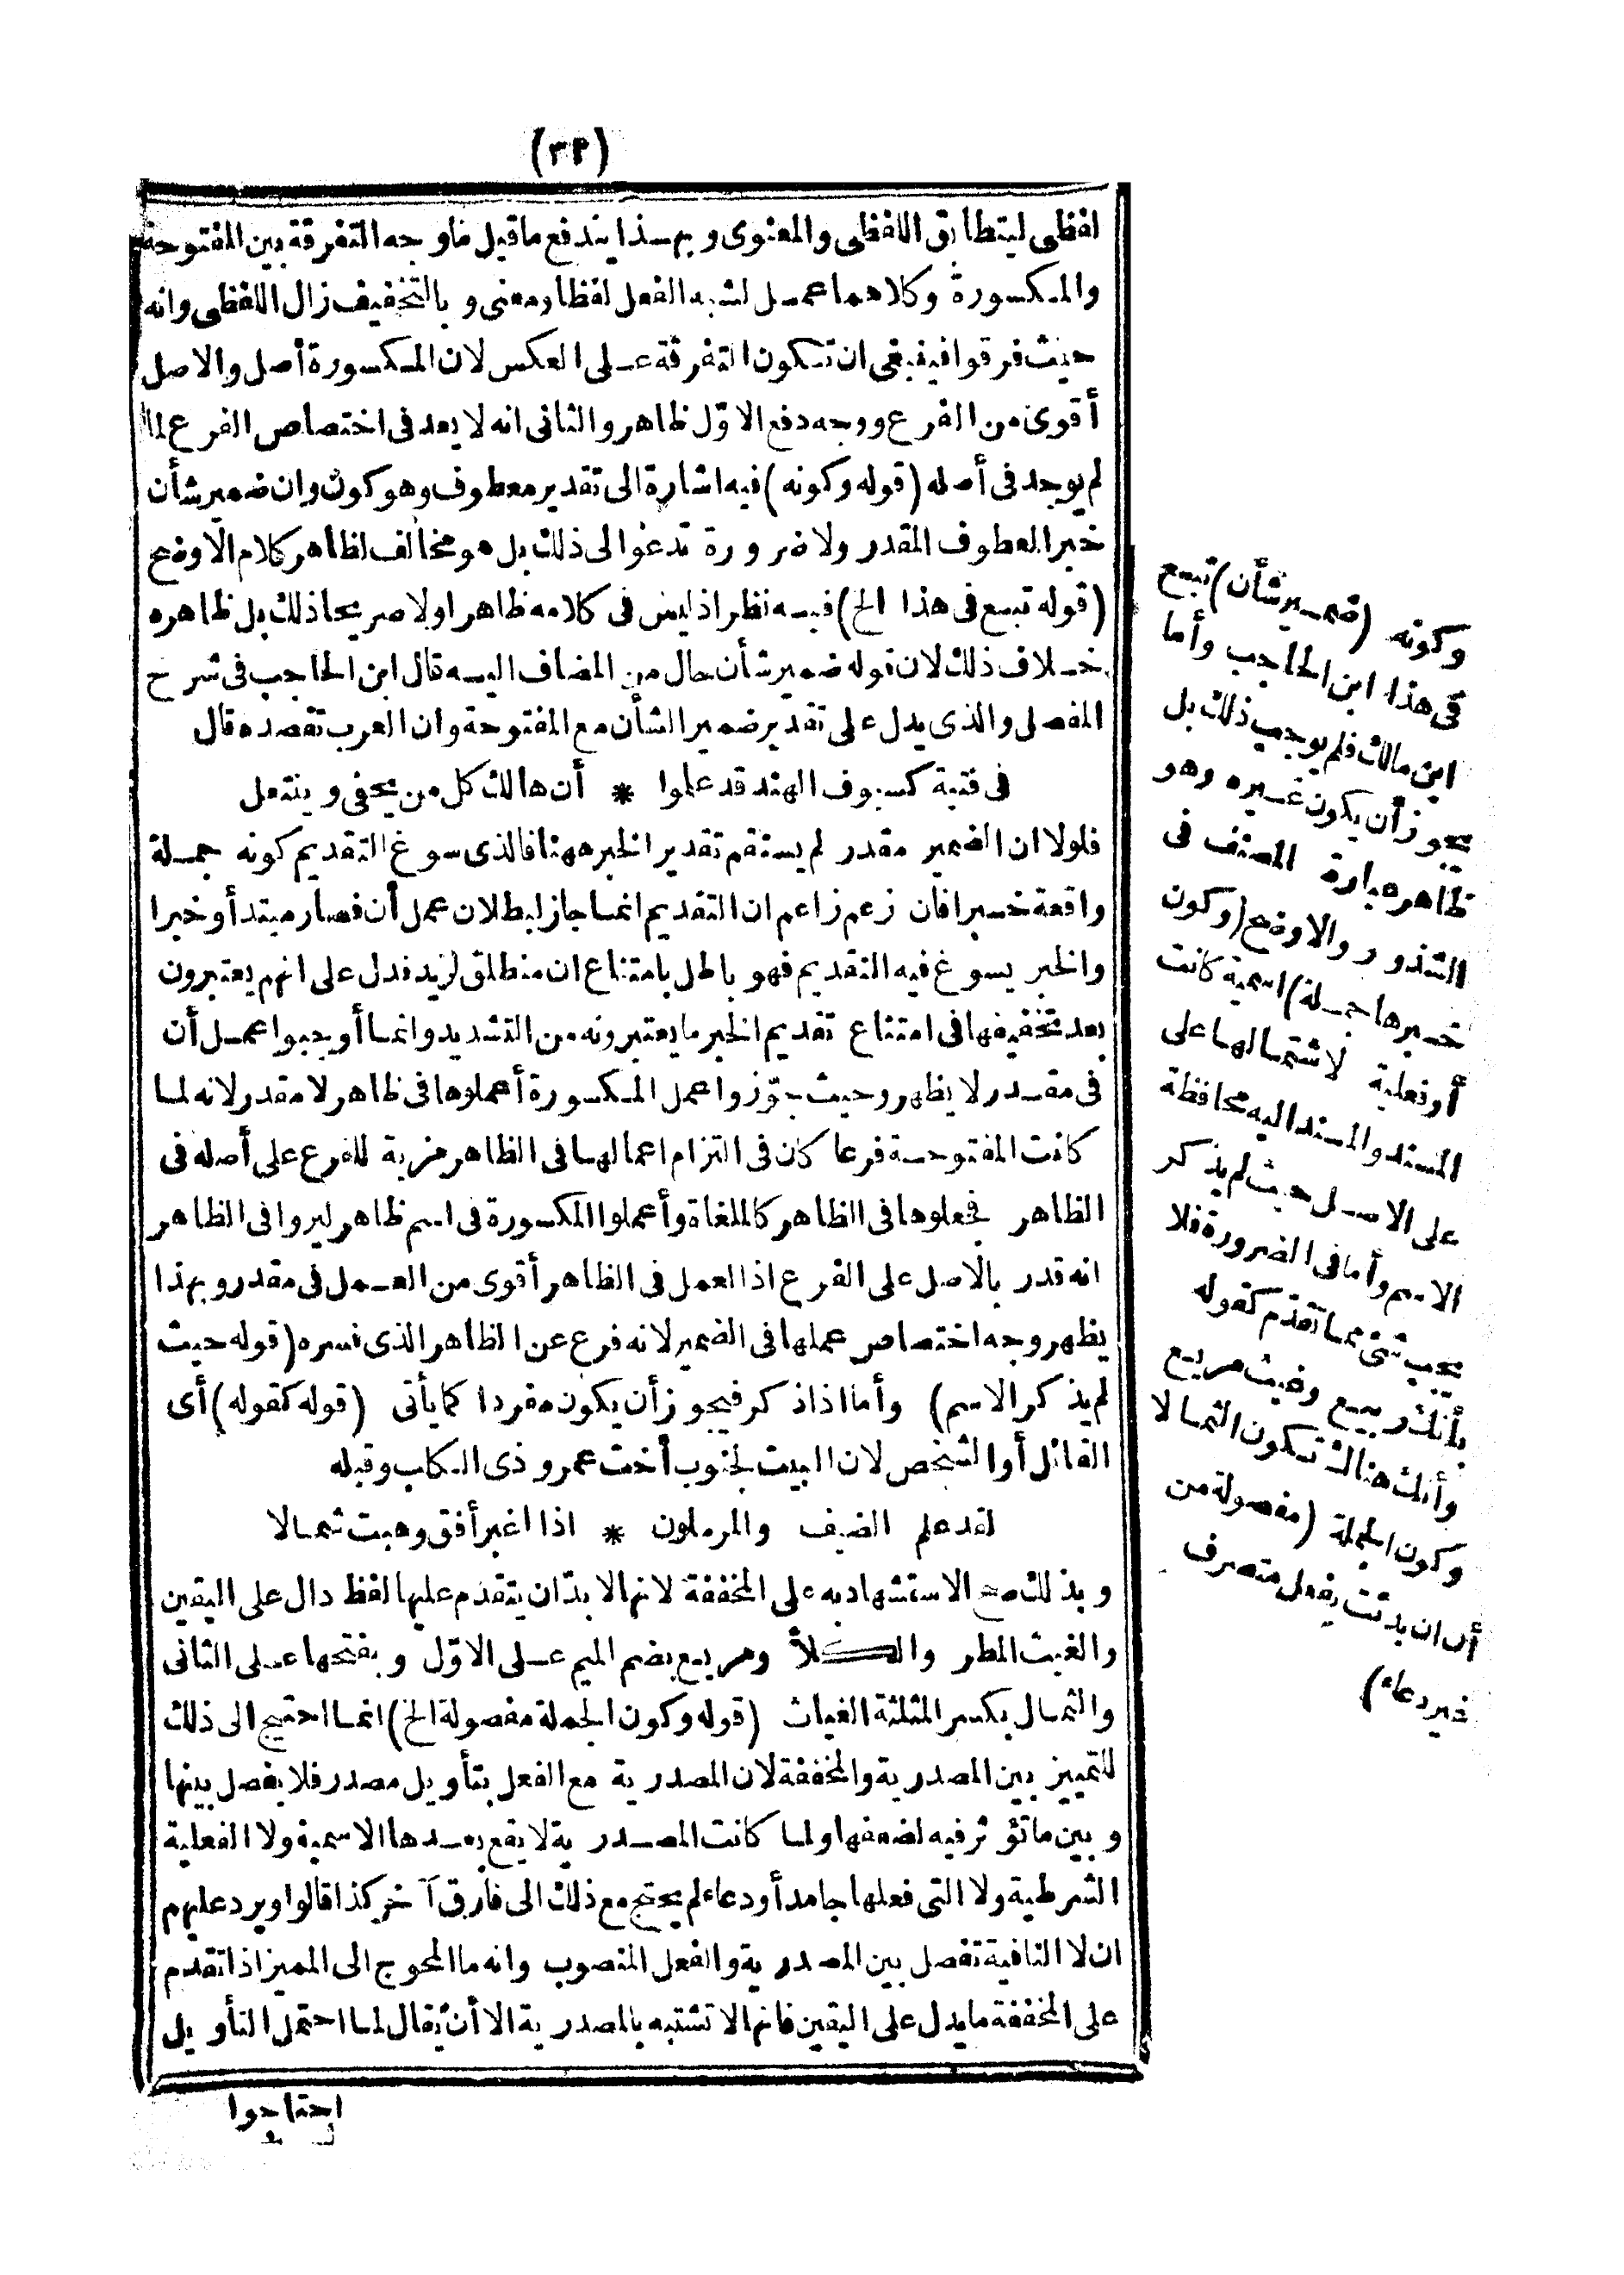 (٣٩)
لفظى ليتطابق اللفظى والمعنوى وبهذا يندفع ماقيل ماوجه التفرقة بين المفتوحة
والمكسورة وكلاهما عمل لشبه الفعل لفظا ومعنى وبالتخفيف زال اللفظى وانه
حيث فرقوا فينبغى ان تكون التفرقة على العكس لان المكسورة أصل والاصل
أقوى من الفرع ووجه دفع الاوّل ظاهر والثانى انه لا بعد فى اختصاص الفرع لما
لم يوجد فى أصله (قوله وكونه) فيه اشارة الى تقدير معطوف وهو كون وان ضمير شأن
خبر المعطوف المقدر ولا ضرورة تدعوا لى ذلك بل هو مخالف لظاهر كلام الاوضح
(قوله تبع فى هذا الخ) فيه نظر اذ ليس فى كلامه ظاهرا ولا صريحا ذلك بل ظاهره
خلاف ذلك لان قوله ضمير شأن حال من المضاف اليه قال ابن الحاجب فى شرح
المفصل والذى يدل على تقدير ضمير الشأن مع المفتوحة وان العرب تقصده قال
فى فتية كسيوف الهند قد علموا * أن هالك كل من يحفى وينتعل
فلولا ان الضمير مقدر لم يستقم تقدير الخبر ههنا فالذى سوغ التقديم كونه جملة
واقعة خبرا فان زعم زاعم ان التقديم انما جاز لبطلان عمل أن فصار مبتدأ وخبرا
والخبر يسوغ فيه التقديم فهو باطل بامتناع ان منطلق لزيد فدل على انهم يعتبرون
بعد تخفيفها فى امتناع تقديم الخبر ما يعتبرونه من التشديد وانما أوجبوا عمل أن
فى مقدر لا يظهر وحيث جوّزوا عمل المكسورة أعملوها فى ظاهر لا مقدر لانه لما
كانت المفتوحة فرعا كان فى التزام اعمالها فى الظاهر مزية للفرع على أصله فى
الظاهر فجعلوها فى الظاهر كالملغاة وأعملوا المكسورة فى اسم ظاهر ليروا فى الظاهر
انه قدر بالاصل على الفرع اذ العمل فى الظاهر أقوى من العمل فى مقدر وبهذا
يظهر وجه اختصاص عملها فى الضمير لانه فرع عن الظاهر الذى فسره (قوله حيث
لم يذكر الاسم) وأما اذا ذكر فيجوز أن يكون مفردا كما يأتى (قوله كقوله) أى
القائل أو الشخص لان البيت لجنوب أخت عمرو ذى الكلب وقبله
لقد علم الضيف والمرملون * اذا اغبر أفق وهبت شمالا
وبذلك صح الاستشهاد به على المخففة لانها لا بدّ ان يتقدم عليها لفظ دال على اليقين
والغيث المطر والكلأ ومريع بضم الميم على الاوّل وبفتحها على الثانى
والثمال بكسر المثلثة الغياث (قوله وكون الجملة مفصولة الخ) انما احتيج الى ذلك
للتمييز بين المصدرية والمخففة لان المصدرية مع الفعل بتأويل مصدر فلا يفصل بينها
وبين ماتؤثر فيه لضعفها ولما كانت المصدرية لا يقع بعدها الاسمية ولا الفعلية
الشرطية ولا التى فعلها جامد أو دعاء لم يحتج مع ذلك الى فارق آخر كذا قالوا ويرد عليهم
ان لا النافية تفصل بين المصدرية والفعل المنصوب وانه ما المحوج الى المميز اذا تقدم
على المخففة مايدل على اليقين فانها لا تشتبه بالمصدرية الا أن يقال لما احتمل التأويل
احتاجوا
وكونه (ضمير شأن) تبع
فى هذا ابن الحاجب وأما
ابن مالك فلم يوجب ذلك بل
يجوز أن يكون غيره وهو
ظاهر عبارة المصنف فى
الشذور والاوضح (وكون
خبرها جملة) اسمية كانت
أو فعلية لاشتمالها على
المسند والمسند اليه محافظة
على الاصل حيث لم يذكر
الاسم وأما فى الضرورة فلا
يجب شئ مما تقدّم كقوله
بأنك ربيع وغيث مريع
وأنك هناك تكون الثمالا
وكون الجملة (مفصولة من
أن ان بدئت بفعل متصرف
غير دعاء)